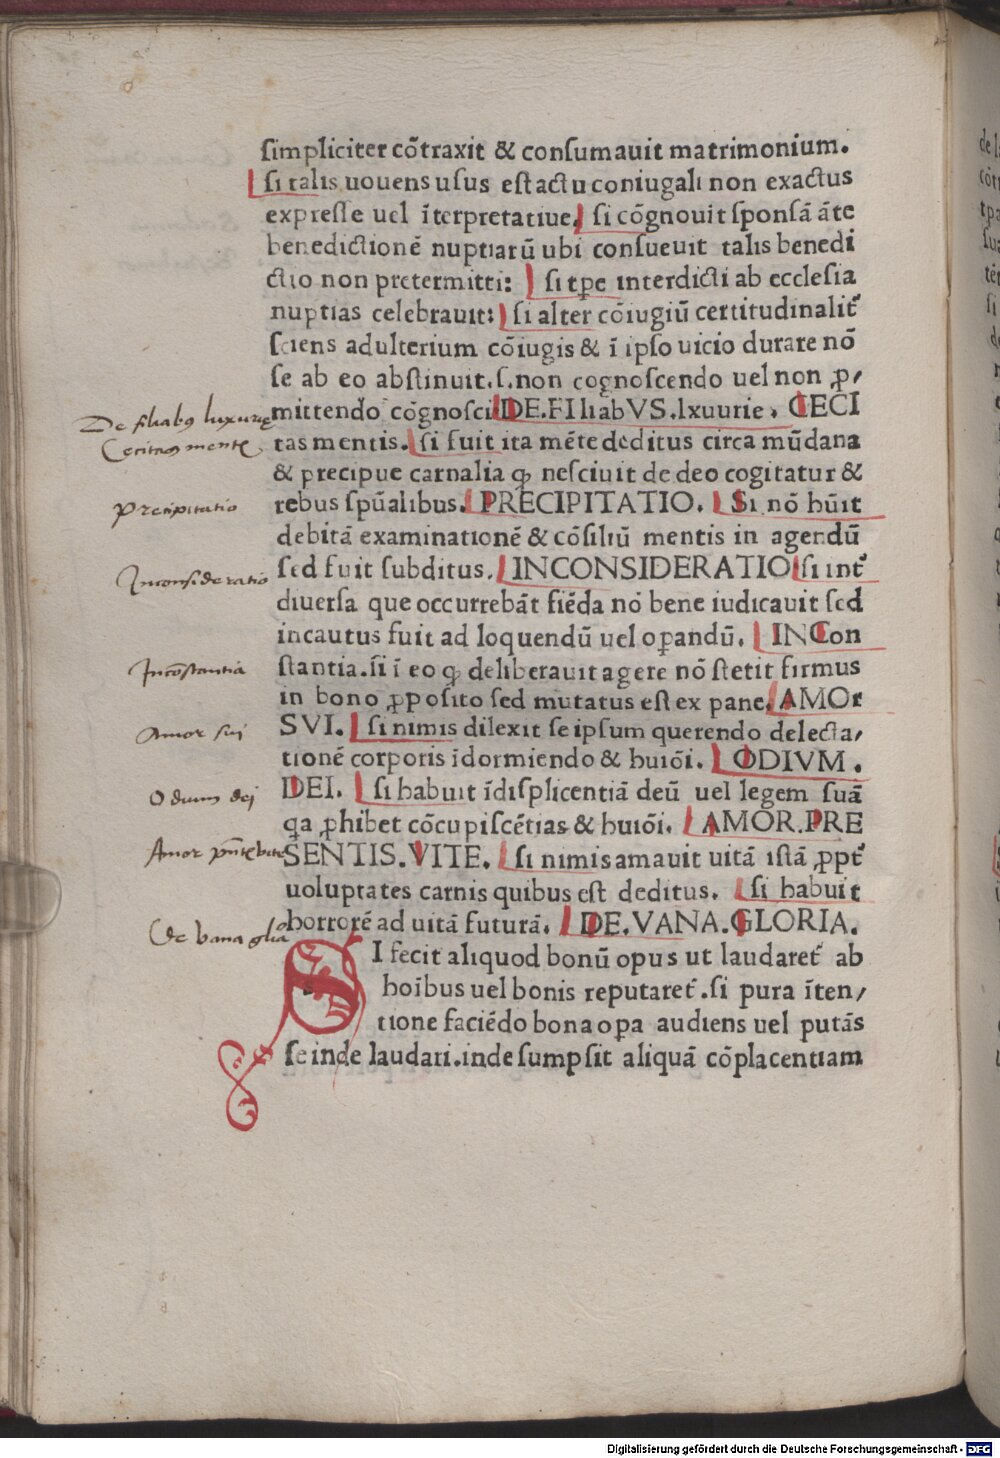 simpliciter cõtraxit & consumauit matrimonium.
si talis uouens usus est actu coniugali non exactus
expresse uel ĩterpretatiue. si cõgnouit sponsã ãte
benedictionẽ nuptiarũ ubi consueuit talis benedi
ctio non pretermitti: si tp̃e interdicti ab ecclesia
nuptias celebrauit: si alter cõiugiũ certitudinalit᷑
sciens adulterium cõiugis & ĩ ipso uicio durare nõ
se ab eo abstinuit.s.non cognoscendo uel non ꝑ/
mittendo cõgnosci DE.FIliabVS.lxuurie. CECI
tas mentis. si fuit ita mẽte deditus circa mũdana
& precipue carnalia ꝙ nesciuit de deo cogitatur &
rebus spũalibus. PRECIPITATIO. Si nõ hũit
debitã examinationẽ & cõsiliũ mentis in agendũ
sed fuit subditus. INCONSIDERATIO si int᷑
diuersa que occurrebãt fiẽda nõ bene iudicauit sed
incautus fuit ad loquendũ uel oꝑandũ. INCon
stantia.si ĩ eo ꝙ deliberauit agere nõ stetit firmus
in bono ꝓposito sed mutatus est ex pane. AMOr
SVI. si nimis dilexit se ipsum querendo delecta/
tionẽ corporis ĩdormiendo & huiõi. ODIVM.
DEI. si habuit ĩdisplicentiã deũ uel legem suã
qa ꝓhibet cõcupiscẽtias & huiõi. AMOR.PRE
SENTIS.VITE. si nimis amauit uitã istã ꝓpt᷑
uoluptates carnis quibus est deditus. si habuit
horrorẽ ad uitã futurã. DE.VANA.GLORIA.
SI fecit aliquod bonũ opus ut laudaret᷑ ab
hoĩbus uel bonis reputaret᷑.si pura ĩten/
tione faciẽdo bona oꝑa audiens uel putãs
se inde laudari.inde sumpsit aliquã cõplacentiam
De filiabꝯ luxurie
Cecitas mentis
Precipitatio
Inconsideratio
Incõstantia
Amor sui
Odium dei
Amor pñtis vite
De vana glia
Digitalisierung gefördert durch die Deutsche Forschungsgemeinschaft - DFG